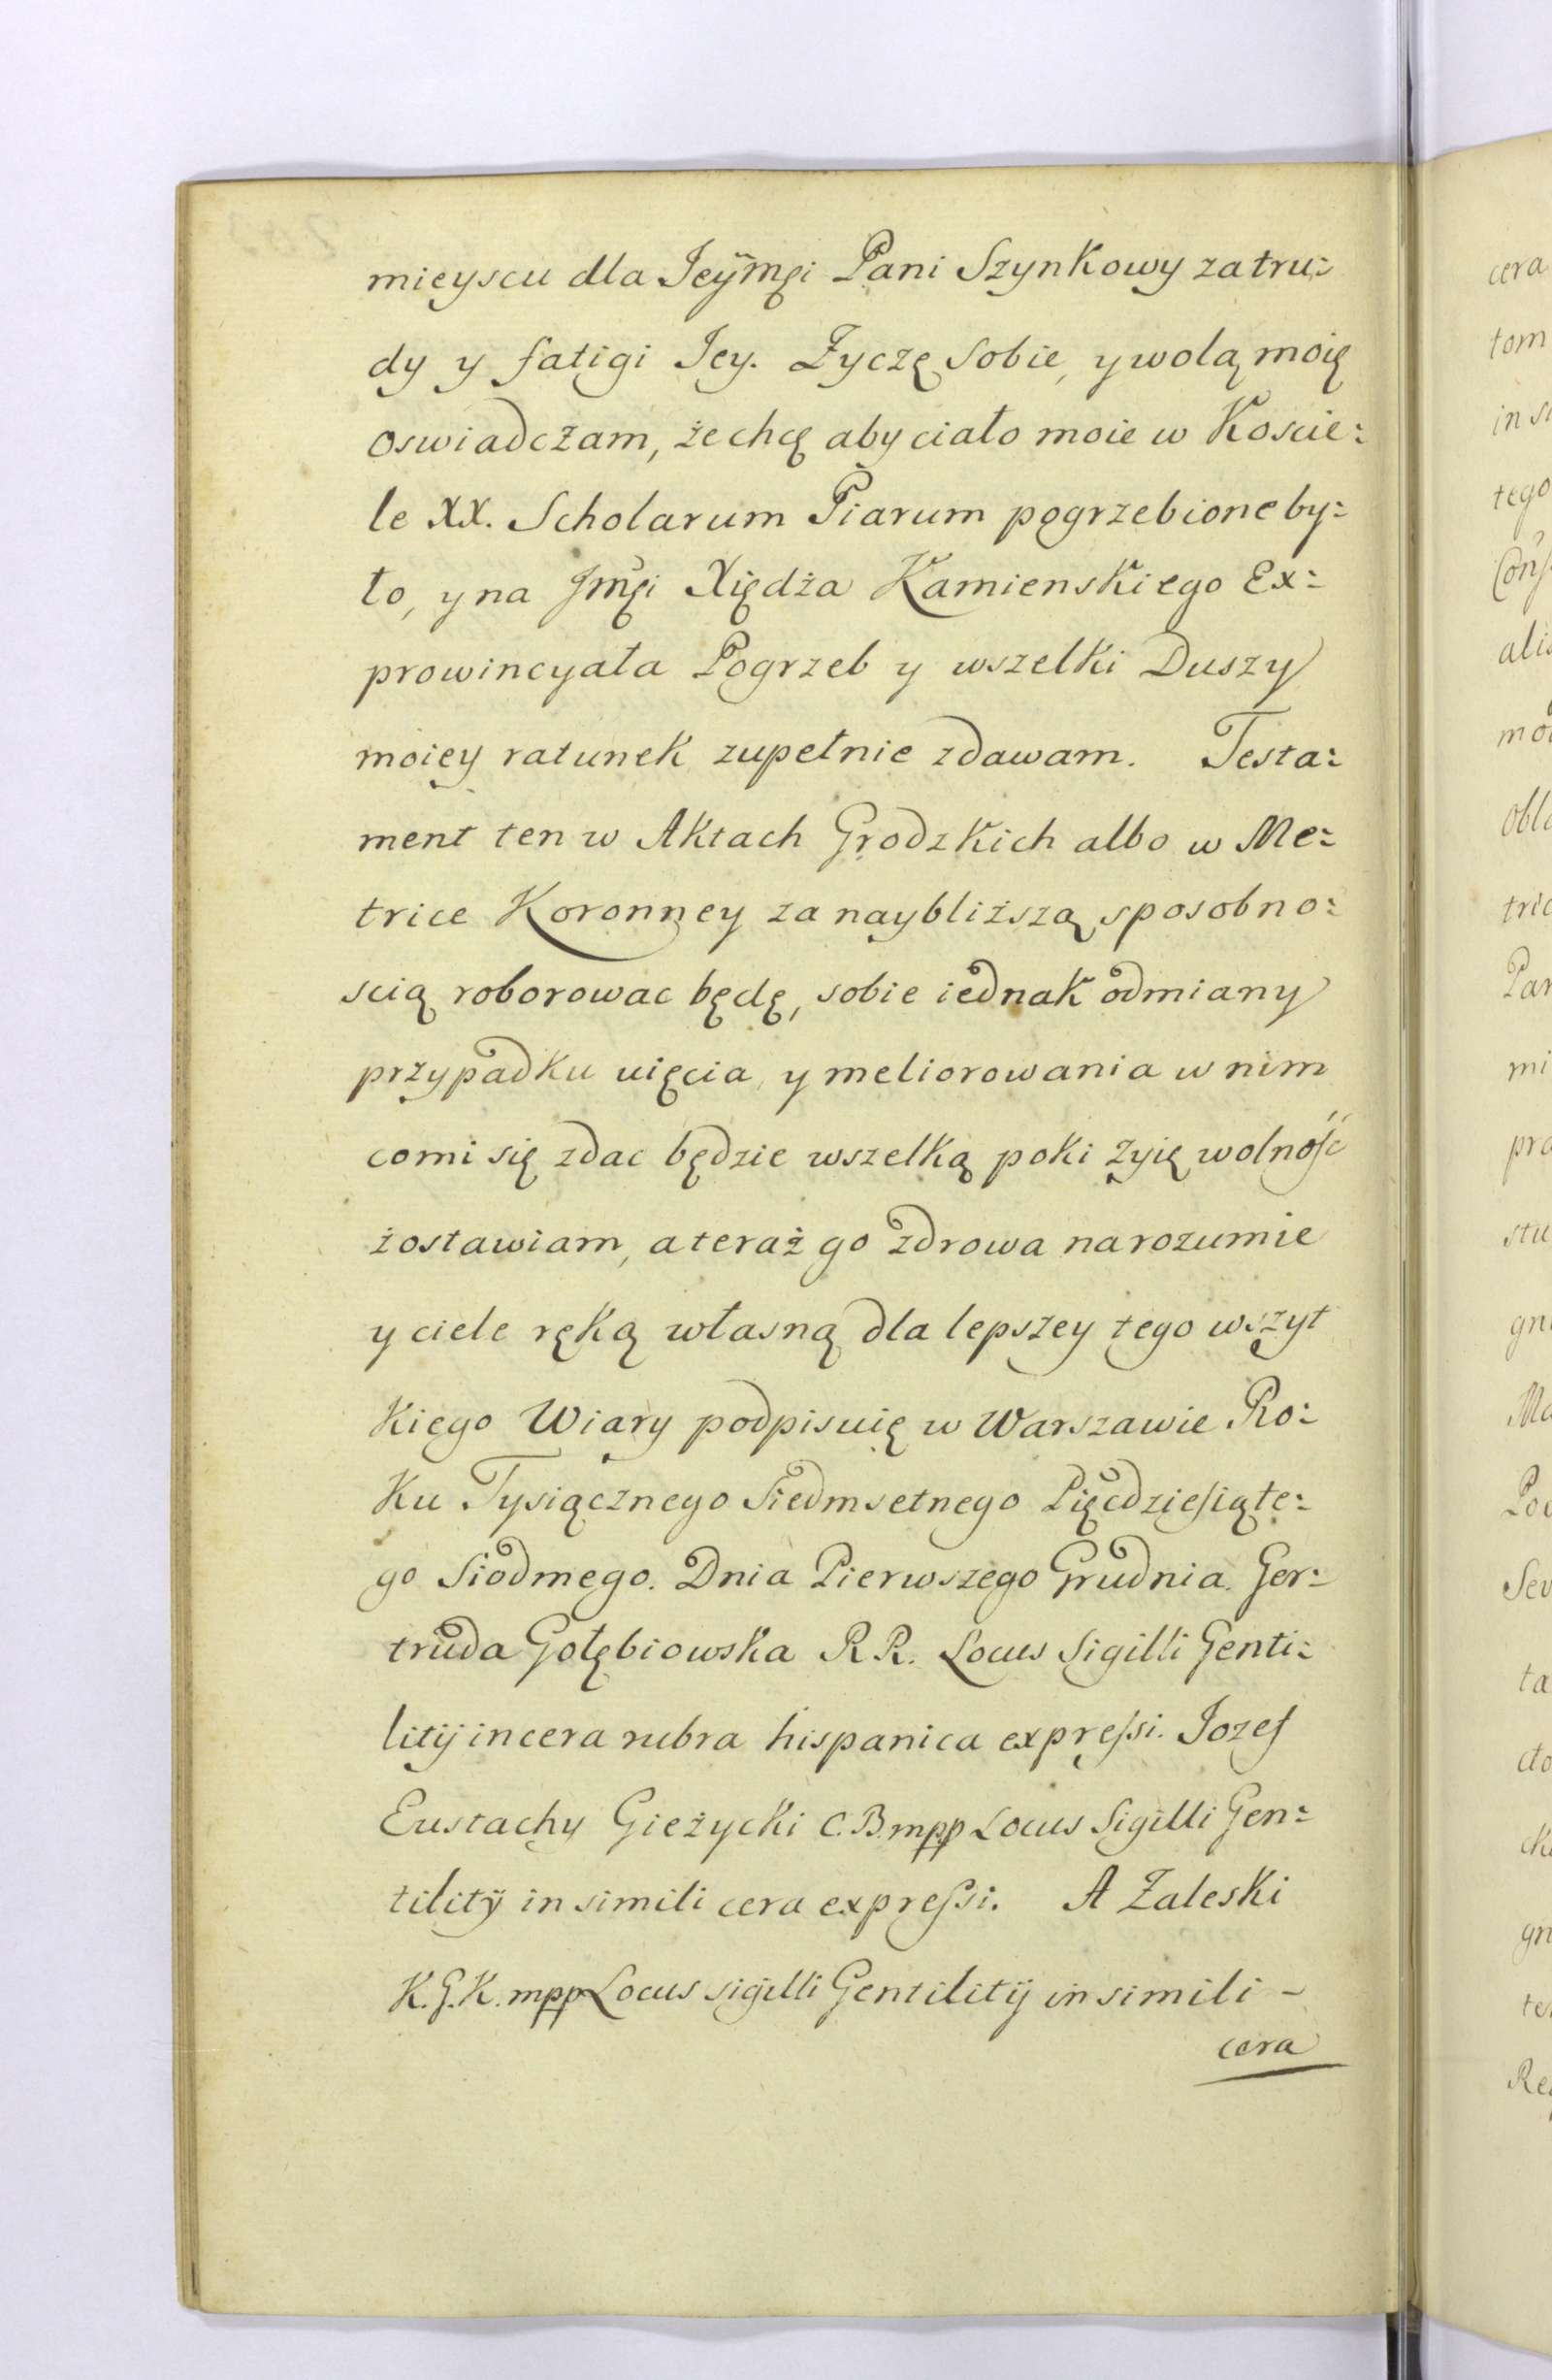 mieyscu dla Jeÿmci Pani Szynkowy za tru:
dy y fatigi Jey. Zyczę sobie, y wolą moię
oswiadczam, że chcę aby ciało moie w Koscie:
le XX. Scholarum Piarum pogrzebione by:
ło, y na Jmci Xiędża Kamienskiego Ex:
prowincyała Pogrzeb y wszelki Duszy
moiey ratunek zupełnie zdawam. Testa:
ment ten w Aktach Grodzkich albo w Me:
trice Koronney za naybliższą sposobno:
scią roborowac będę, sobie iednak odmiany
przypadku uięcia y meliorowania w nim
co mi się zdac będzie wszelką poki żyię wolność
żostawiam, a teraż go zdrowa na rozumie
y ciele ręką własną dla lepszey tego wszyt
kiego Wiary podpisuię w Warszawie Ro:
ku Tysiącznego Siedmsetnego Pięcdziesiąte:
go Siodmego. Dnia Pierwszego Grudnia. Ger:
truda Gołębiowska R R. Locus Sigilli Genti:
litij in cera rubra hispanica expressi. Jozef
Eustachy Gieżycki C. B. mpp Locus Sigilli Gen:
tilitij in simili cera expressi. A Zaleski
K. G. K. mpp Locus sigilli Gentilitij in simili -
cera
cera
tom
in si
tego
alis
tric
Par
mi
pra
stu
gn
Ma
ta